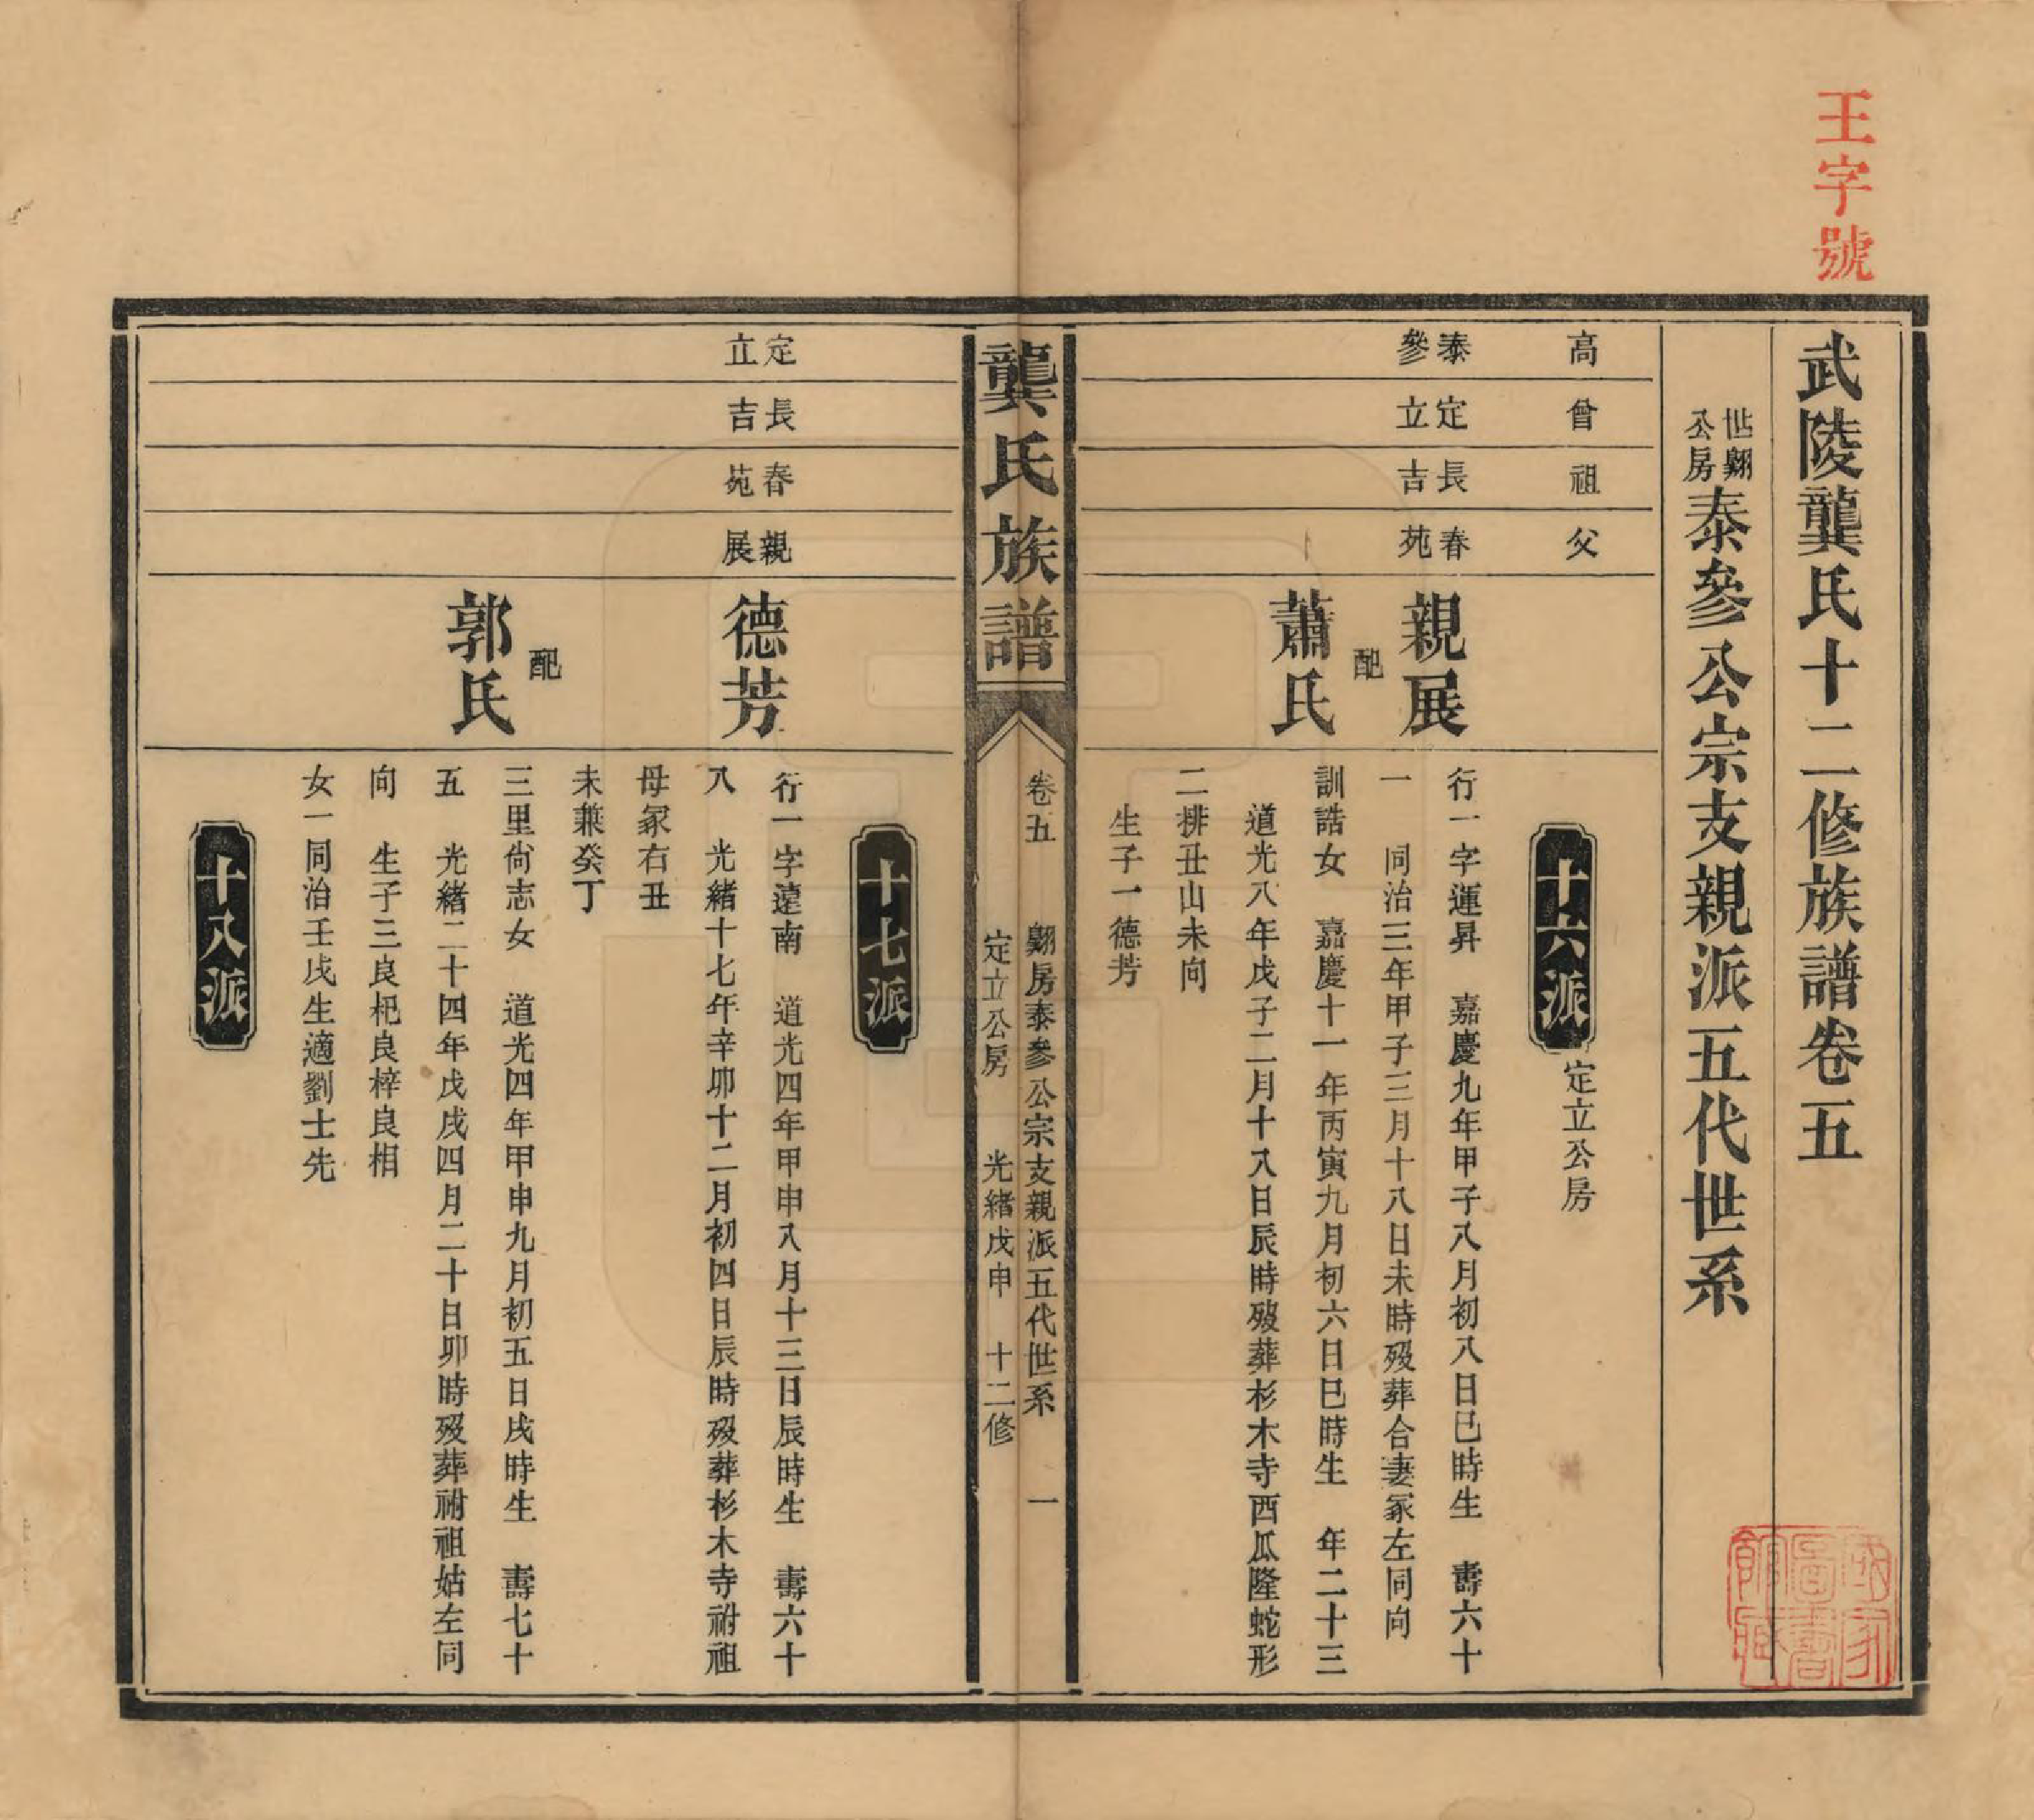 王字號
武陵龔氏十二修族譜卷五
世翾公房泰參公宗支親派五代世系
高
曾
祖
父
十六派 定立公房
泰參
定立
長吉
春苑
親展
行一字運昇 嘉慶九年甲子八月初八日巳時生 壽六十
一 同治三年甲子三月十八日未時歿葬合妻冢左同向
配
蕭氏
訓誥女 嘉慶十一年丙寅九月初六日巳時生 年二十三
道光八年戊子二月十八日辰時歿葬杉木寺西瓜隆蛇形
二排丑山未向
生子一德芳
龔氏族譜
卷五 翾房泰參公宗支親派五代世系 一
定立公房 光緒戊申 十二修
十七派
定立
長吉
春苑
親展
德芳
行一字遠南 道光四年甲申八月十三日辰時生 壽六十
八 光緒十七年辛卯十二月初四日辰時歿葬杉木寺祔祖
母冢右丑
未兼癸丁
配
郭氏
三里尙志女 道光四年甲申九月初五日戌時生 壽七十
五 光緒二十四年戊戌四月二十日卯時歿葬祔祖姑左同
向 生子三良杞良梓良相
女一同治壬戌生適劉士先
十八派
國家圖書館藏